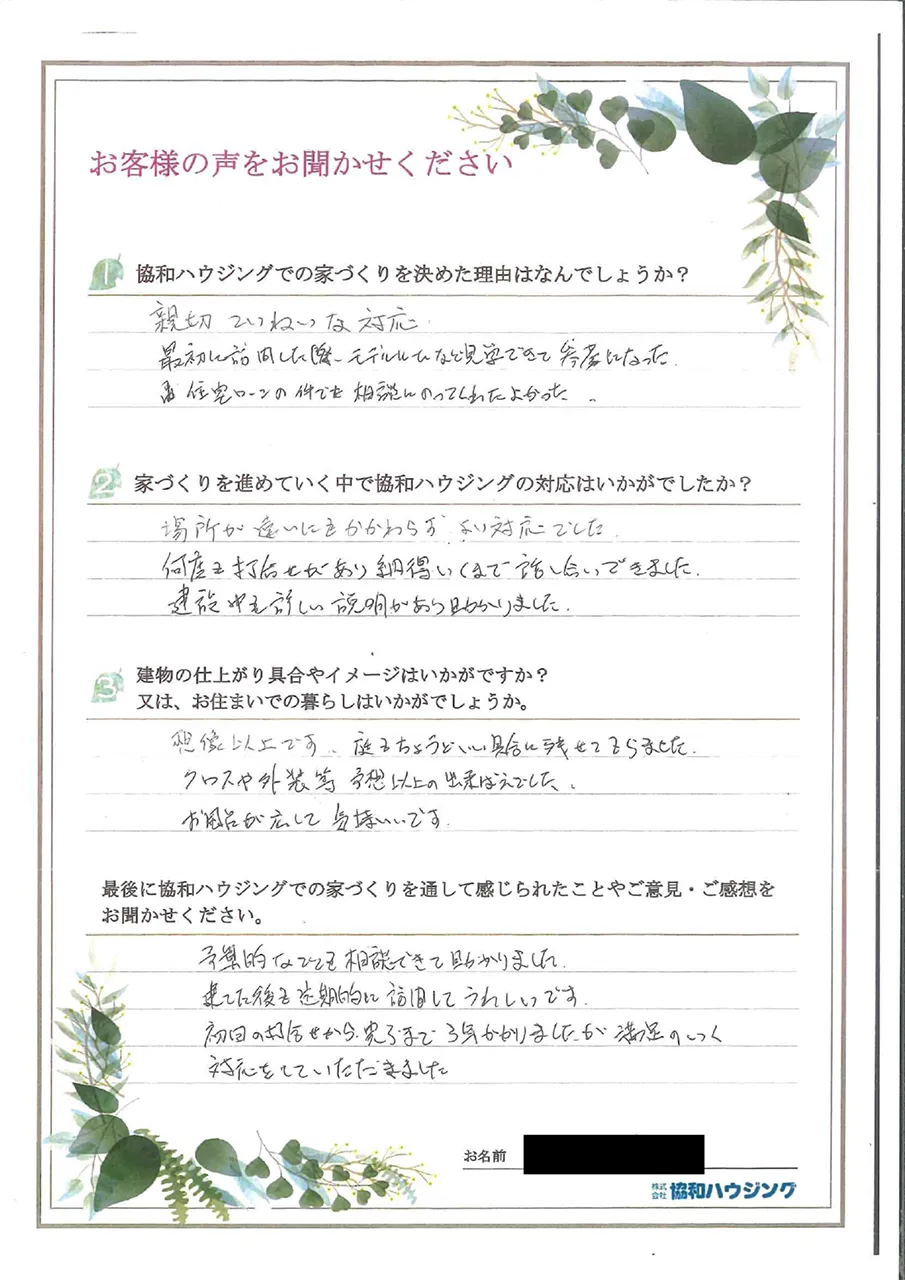 お客様の声をお聞かせください
1 協和ハウジングでの家づくりを決めた理由はなんでしょうか？
親切 ていねいな 対応.
最初に訪問した際、モデルルームなど見学できて 参考になった.
住宅ローンの件でも 相談にのってくれたよかった 。
2 家づくりを進めていく中で協和ハウジングの対応はいかがでしたか？
場所が遠いにもかかわらず よい対応でした
何度も打合せがあり 納得いくまで 話し合いできました.
建設中も詳しい説明があり助かりました.
3 建物の仕上がり具合やイメージはいかがですか？
又は、お住まいでの暮らしはいかがでしょうか。
想像以上です. 庭もちょうどいい具合に残せてもらました.
クロスや外装等 予想以上の出来ばえでした.
お風呂が広して 気持いいです.
最後に協和ハウジングでの家づくりを通して感じられたことやご意見・ご感想を
お聞かせください。
予算的なことも相談できて助かりました.
建てた後も定期的に訪問してうれしいです.
初回の打合せから完了まで 3年かかりましたが 満足のいく
対応をしていただきました
お名前
株式会社 協和ハウジング